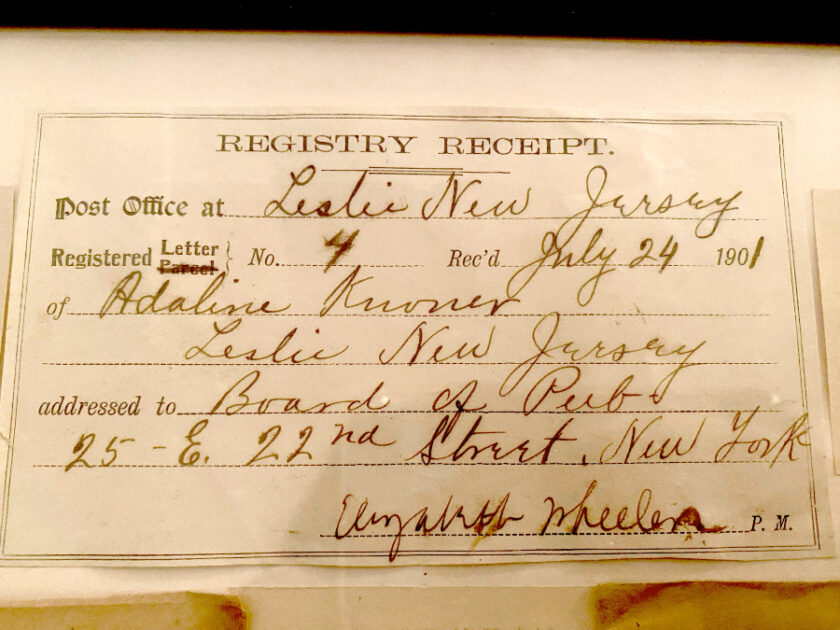 REGISTRY RECEIPT.
Post Office at Leslie New Jersey
Registered Letter Parcel } No. 4 Rec'd July 24 1901
of Adaline
Leslie New Jersey
addressed to Board of Pub.
25 - E. 22nd Street, New York
Elizabeth Wheeler P. M.